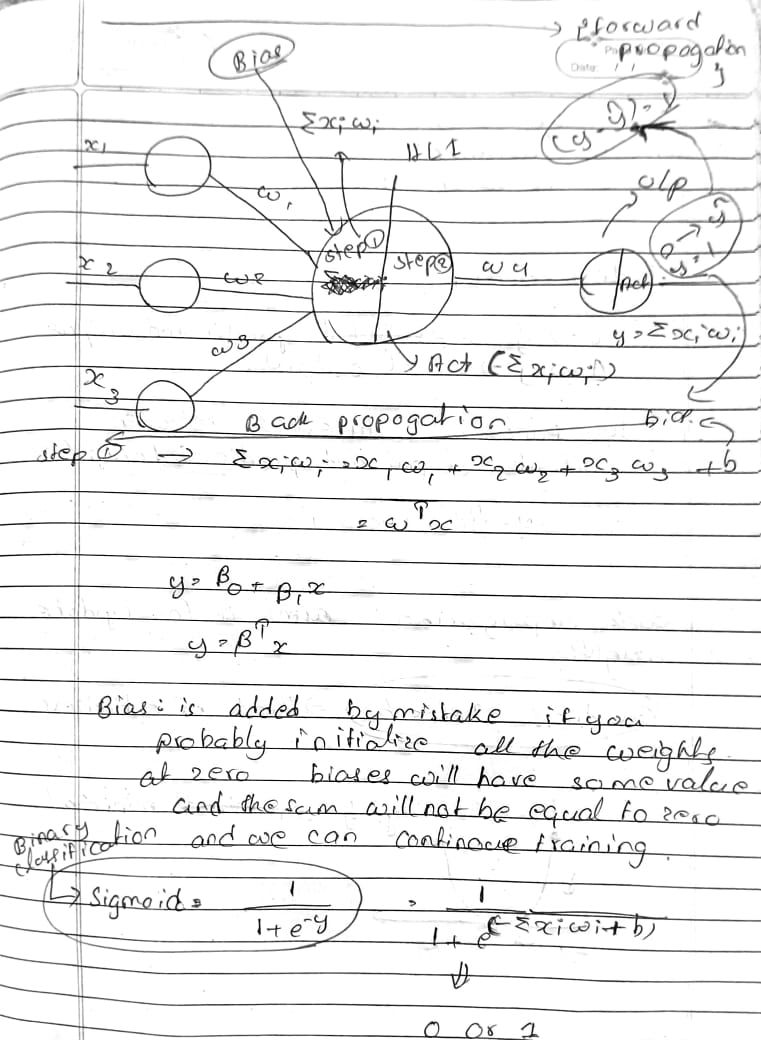 {forward
propogation
}
Date
Bias
Σxiwi
HL1
(y-ŷ)=
x1
w1
o/p
step①
step②
x2
w2
w4
Act
0 → ŷ
y=1
y=Σxiwi
w3
Act (Σxiwi)
x3
Back propogation
step ① → Σxiwi = x1w1 + x2w2 + x3w3 + b
= wᵀx
y= β0 + β1x
y=βᵀx
Bias: is added by mistake if you
probably initialize all the weights
at zero biases will have some value
and the sum will not be equal to zero
and we can continoue training.
Binary
classification
↳ Sigmoid = 1/(1+e^-y) = 1/(1+e^(-Σxiwi+b))
⇓
0 or 1